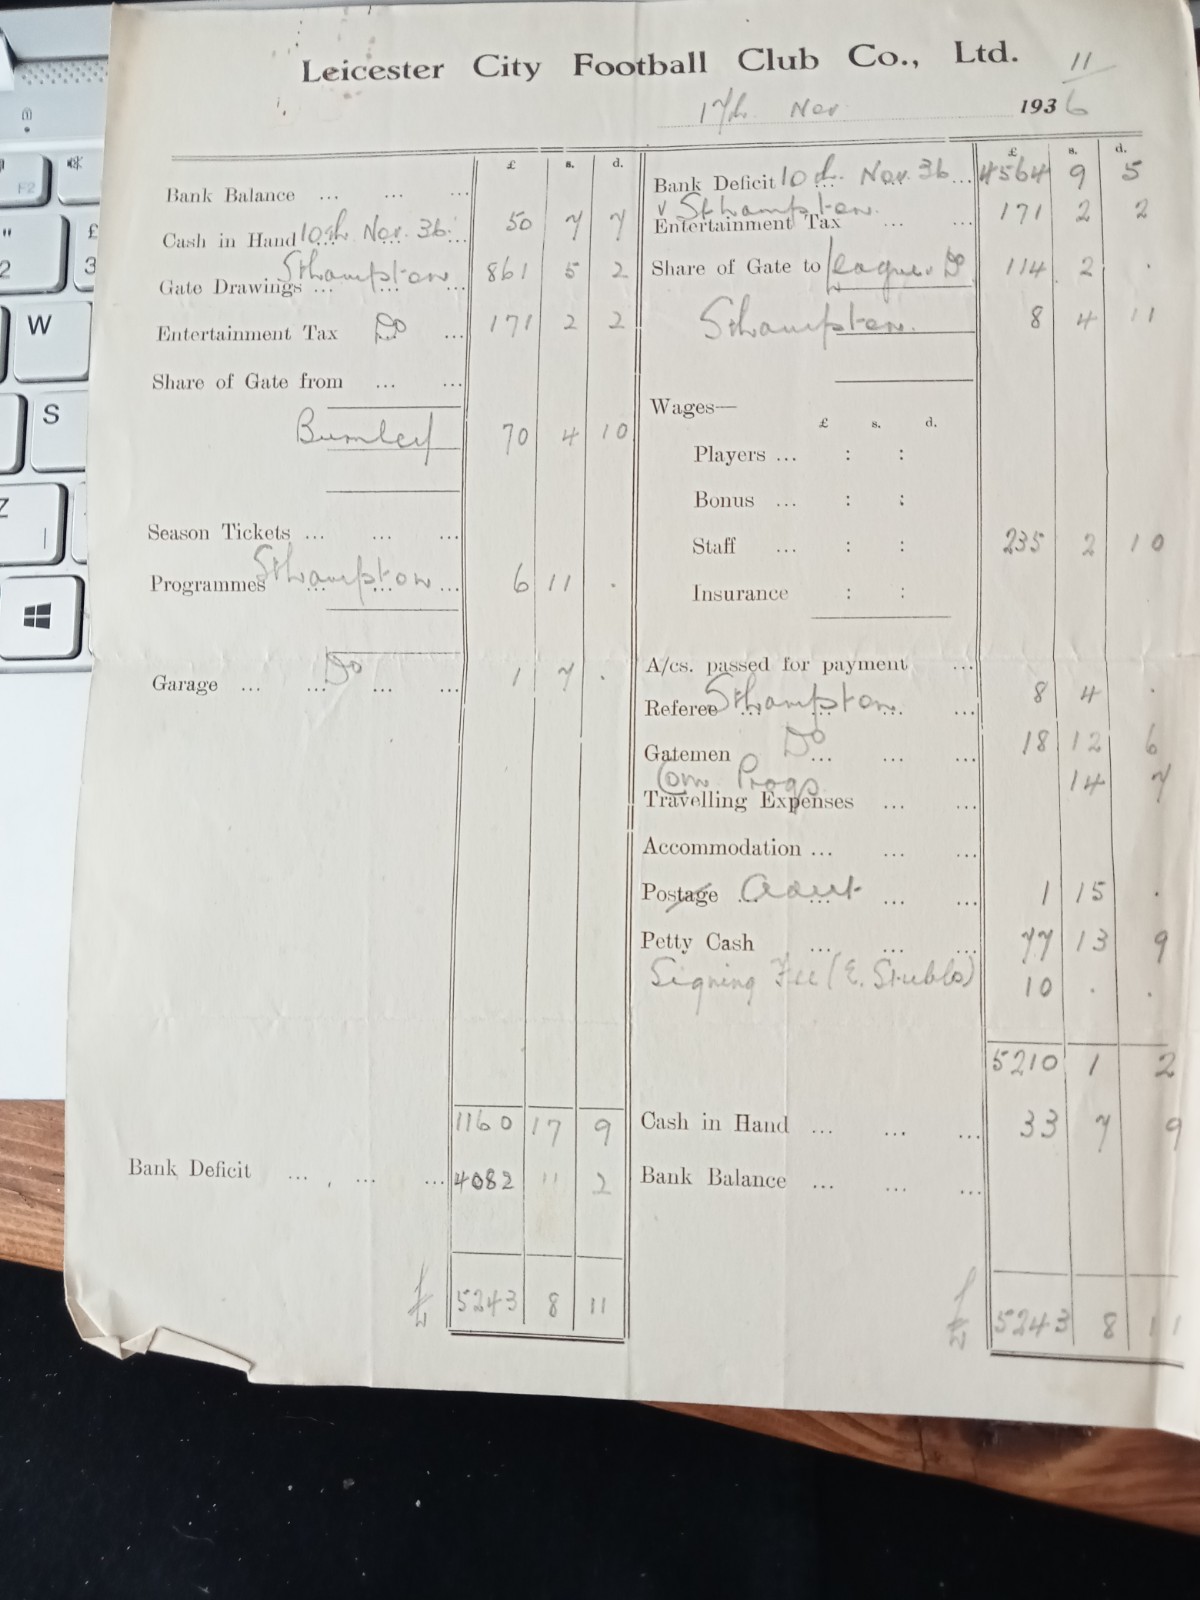 Leicester City Football Club Co., Ltd.
11
17th Nov 1936
£ s. d.
Bank Balance ... ... ...
Cash in Hand 10th Nov. 36. ... 50 7 7
Gate Drawings ... Sthampton ... 861 5 2
Entertainment Tax Do ... 171 2 2
Share of Gate from ... ...
Burnley 70 4 10
Season Tickets ... ... ...
Programmes Sthampton ... 6 11 .
Garage ... ... Do ... ... 1 7 .
1160 17 9
Bank Deficit ... ... ... 4082 11 2
£ 5243 8 11
£ s. d.
Bank Deficit 10th Nov. 36 ... 4564 9 5
v Sthampton.
Entertainment Tax ... ... 171 2 2
Share of Gate to League. Do 114 2 .
Sthampton. 8 4 11
Wages—
£ s. d.
Players ... : :
Bonus ... : :
Staff ... : : 235 2 10
Insurance : :
A/cs. passed for payment ...
Referee Sthampton. ... 8 4 .
Gatemen Do ... ... ... 18 12 6
Com Progs 14 7
Travelling Expenses ... ...
Accommodation ... ... ...
Postage Advt ... ... 1 15 .
Petty Cash ... ... ... 77 13 9
Signing Fee (E. Stubbs) 10 . .
5210 1 2
Cash in Hand ... ... ... 33 7 9
Bank Balance ... ... ...
£ 5243 8 11
F2
"
2
£
3
W
S
Z